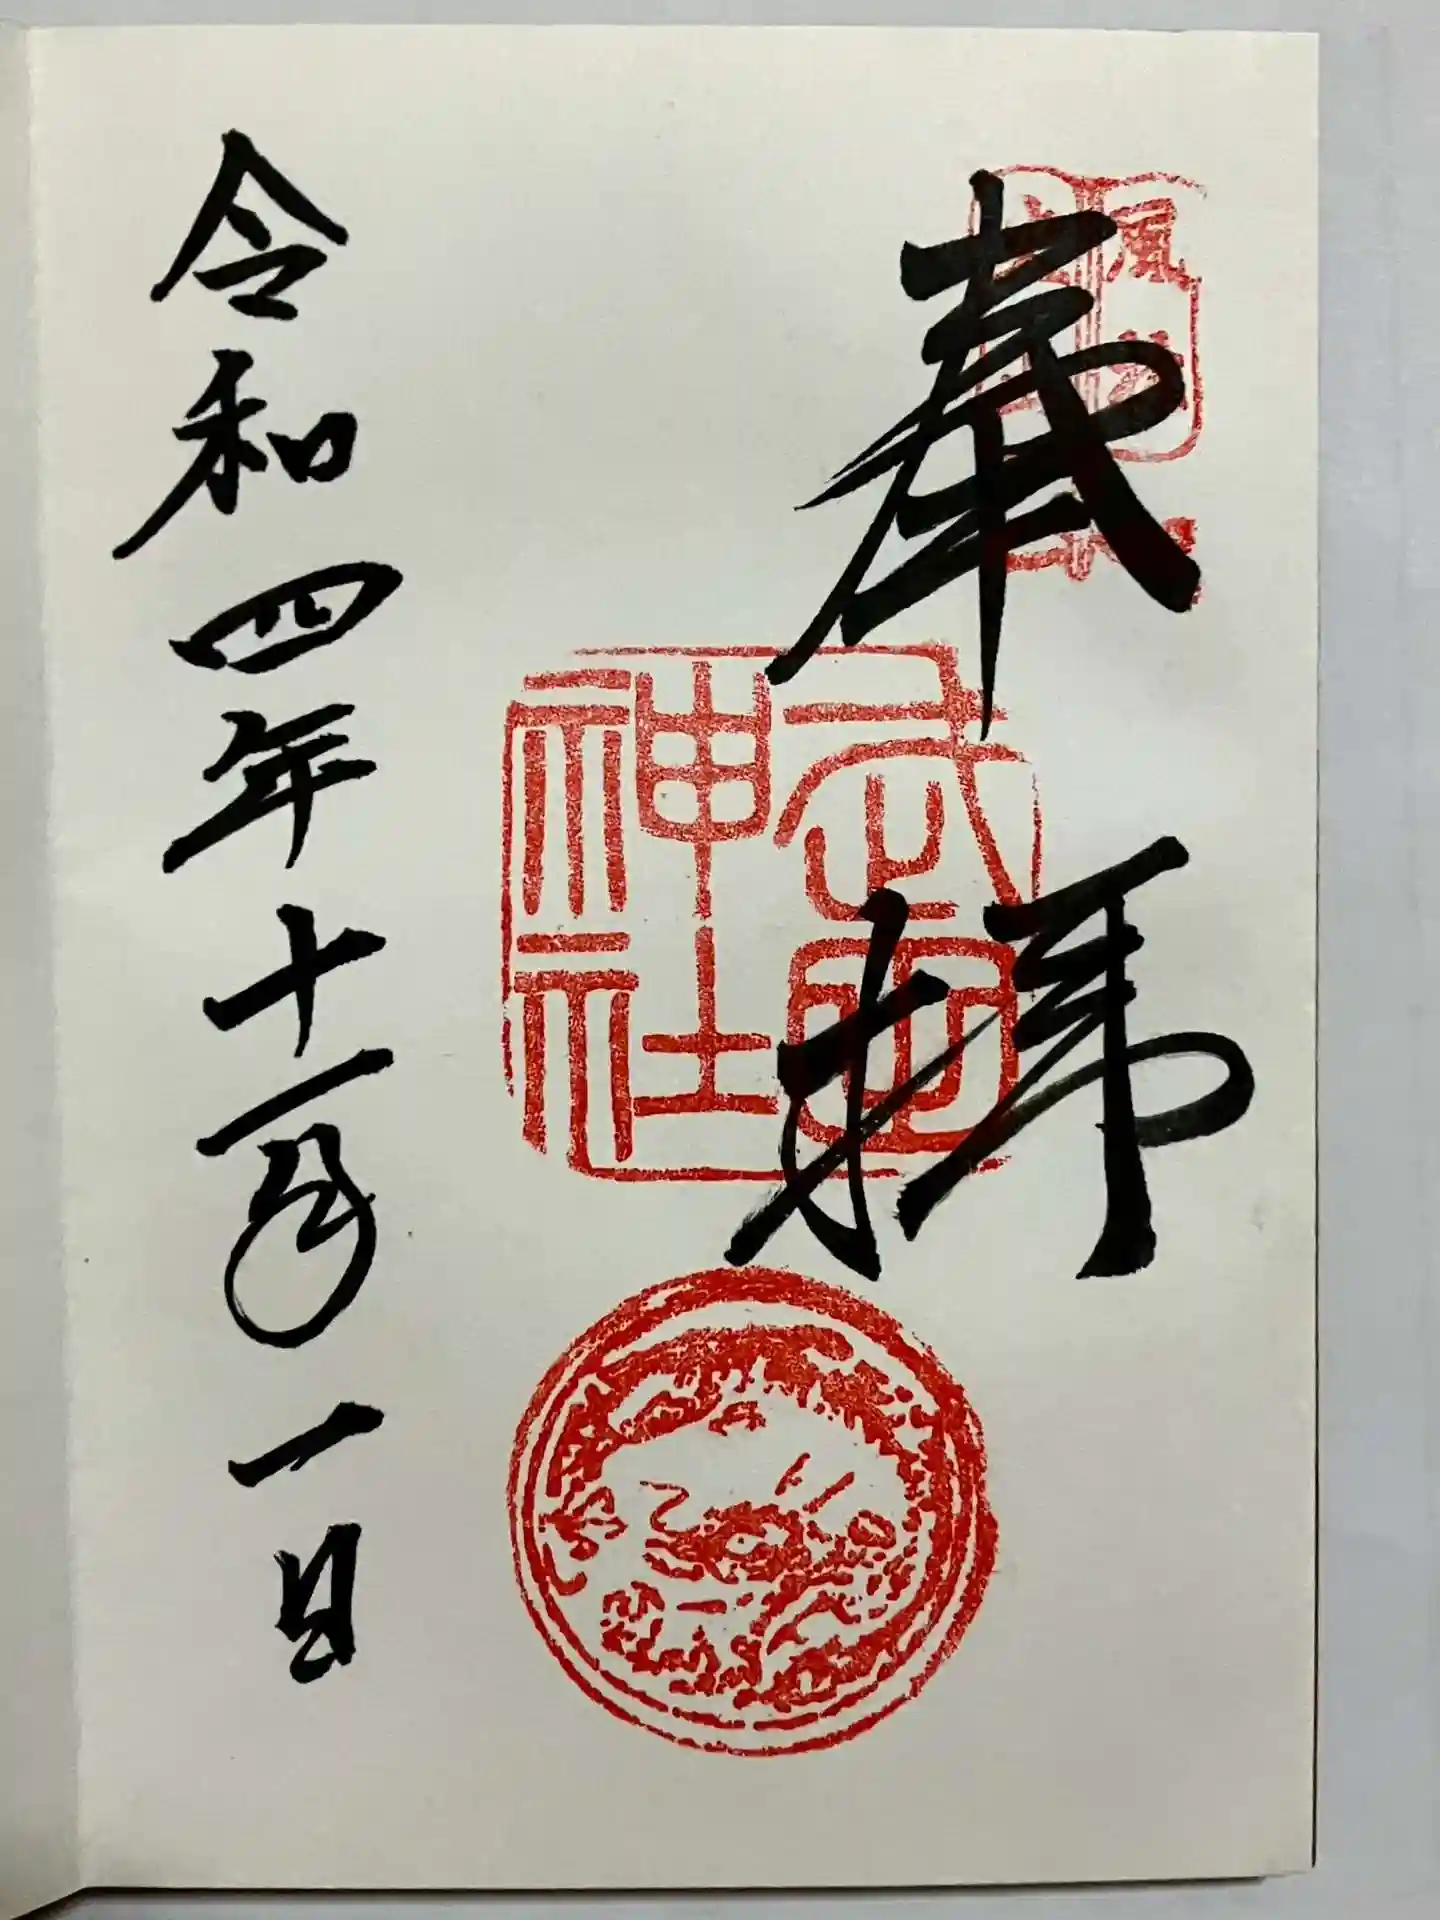 奉拝
武田神社
令和四年十一月一日